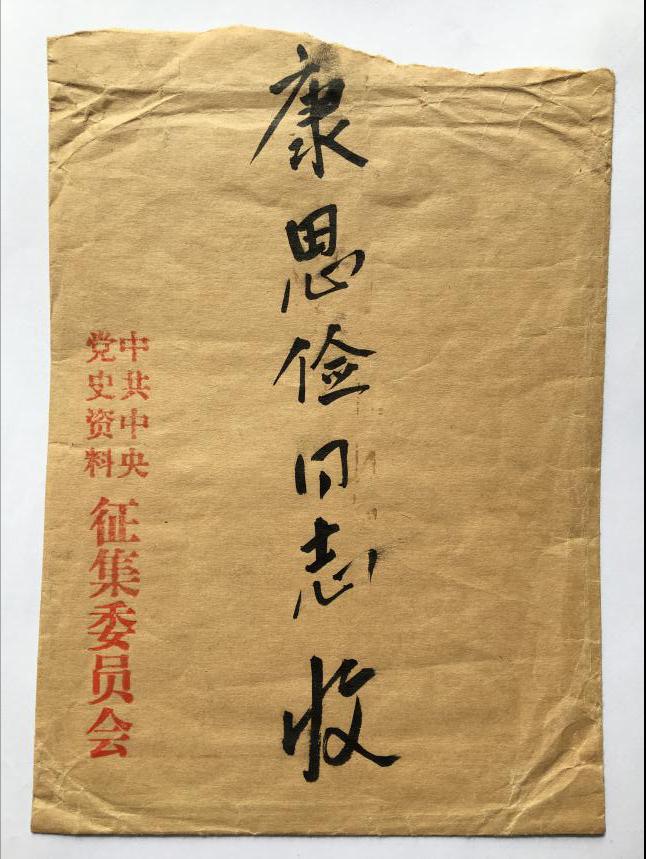 康思俭同志收
中共中央
党史资料
征集委员会